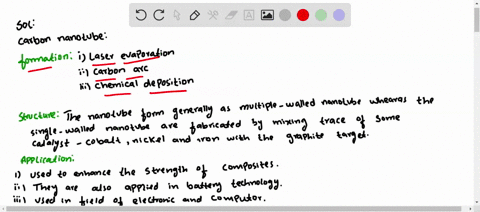 Sol:
carbon nanotube:
formation: i) Laser evaporation
ii) carbon arc
iii) chemical deposition
Structure: The nanotube form generally as multiple-walled nanotube wheareas the
single-walled nanotube are fabricated by mixing trace of some
catalyst - cobalt, nickel and iron with the graphite target.
Application:
i) used to enhance the strength of composites.
ii) They are also applied in battery technology.
iii) used in field of electronic and computor.